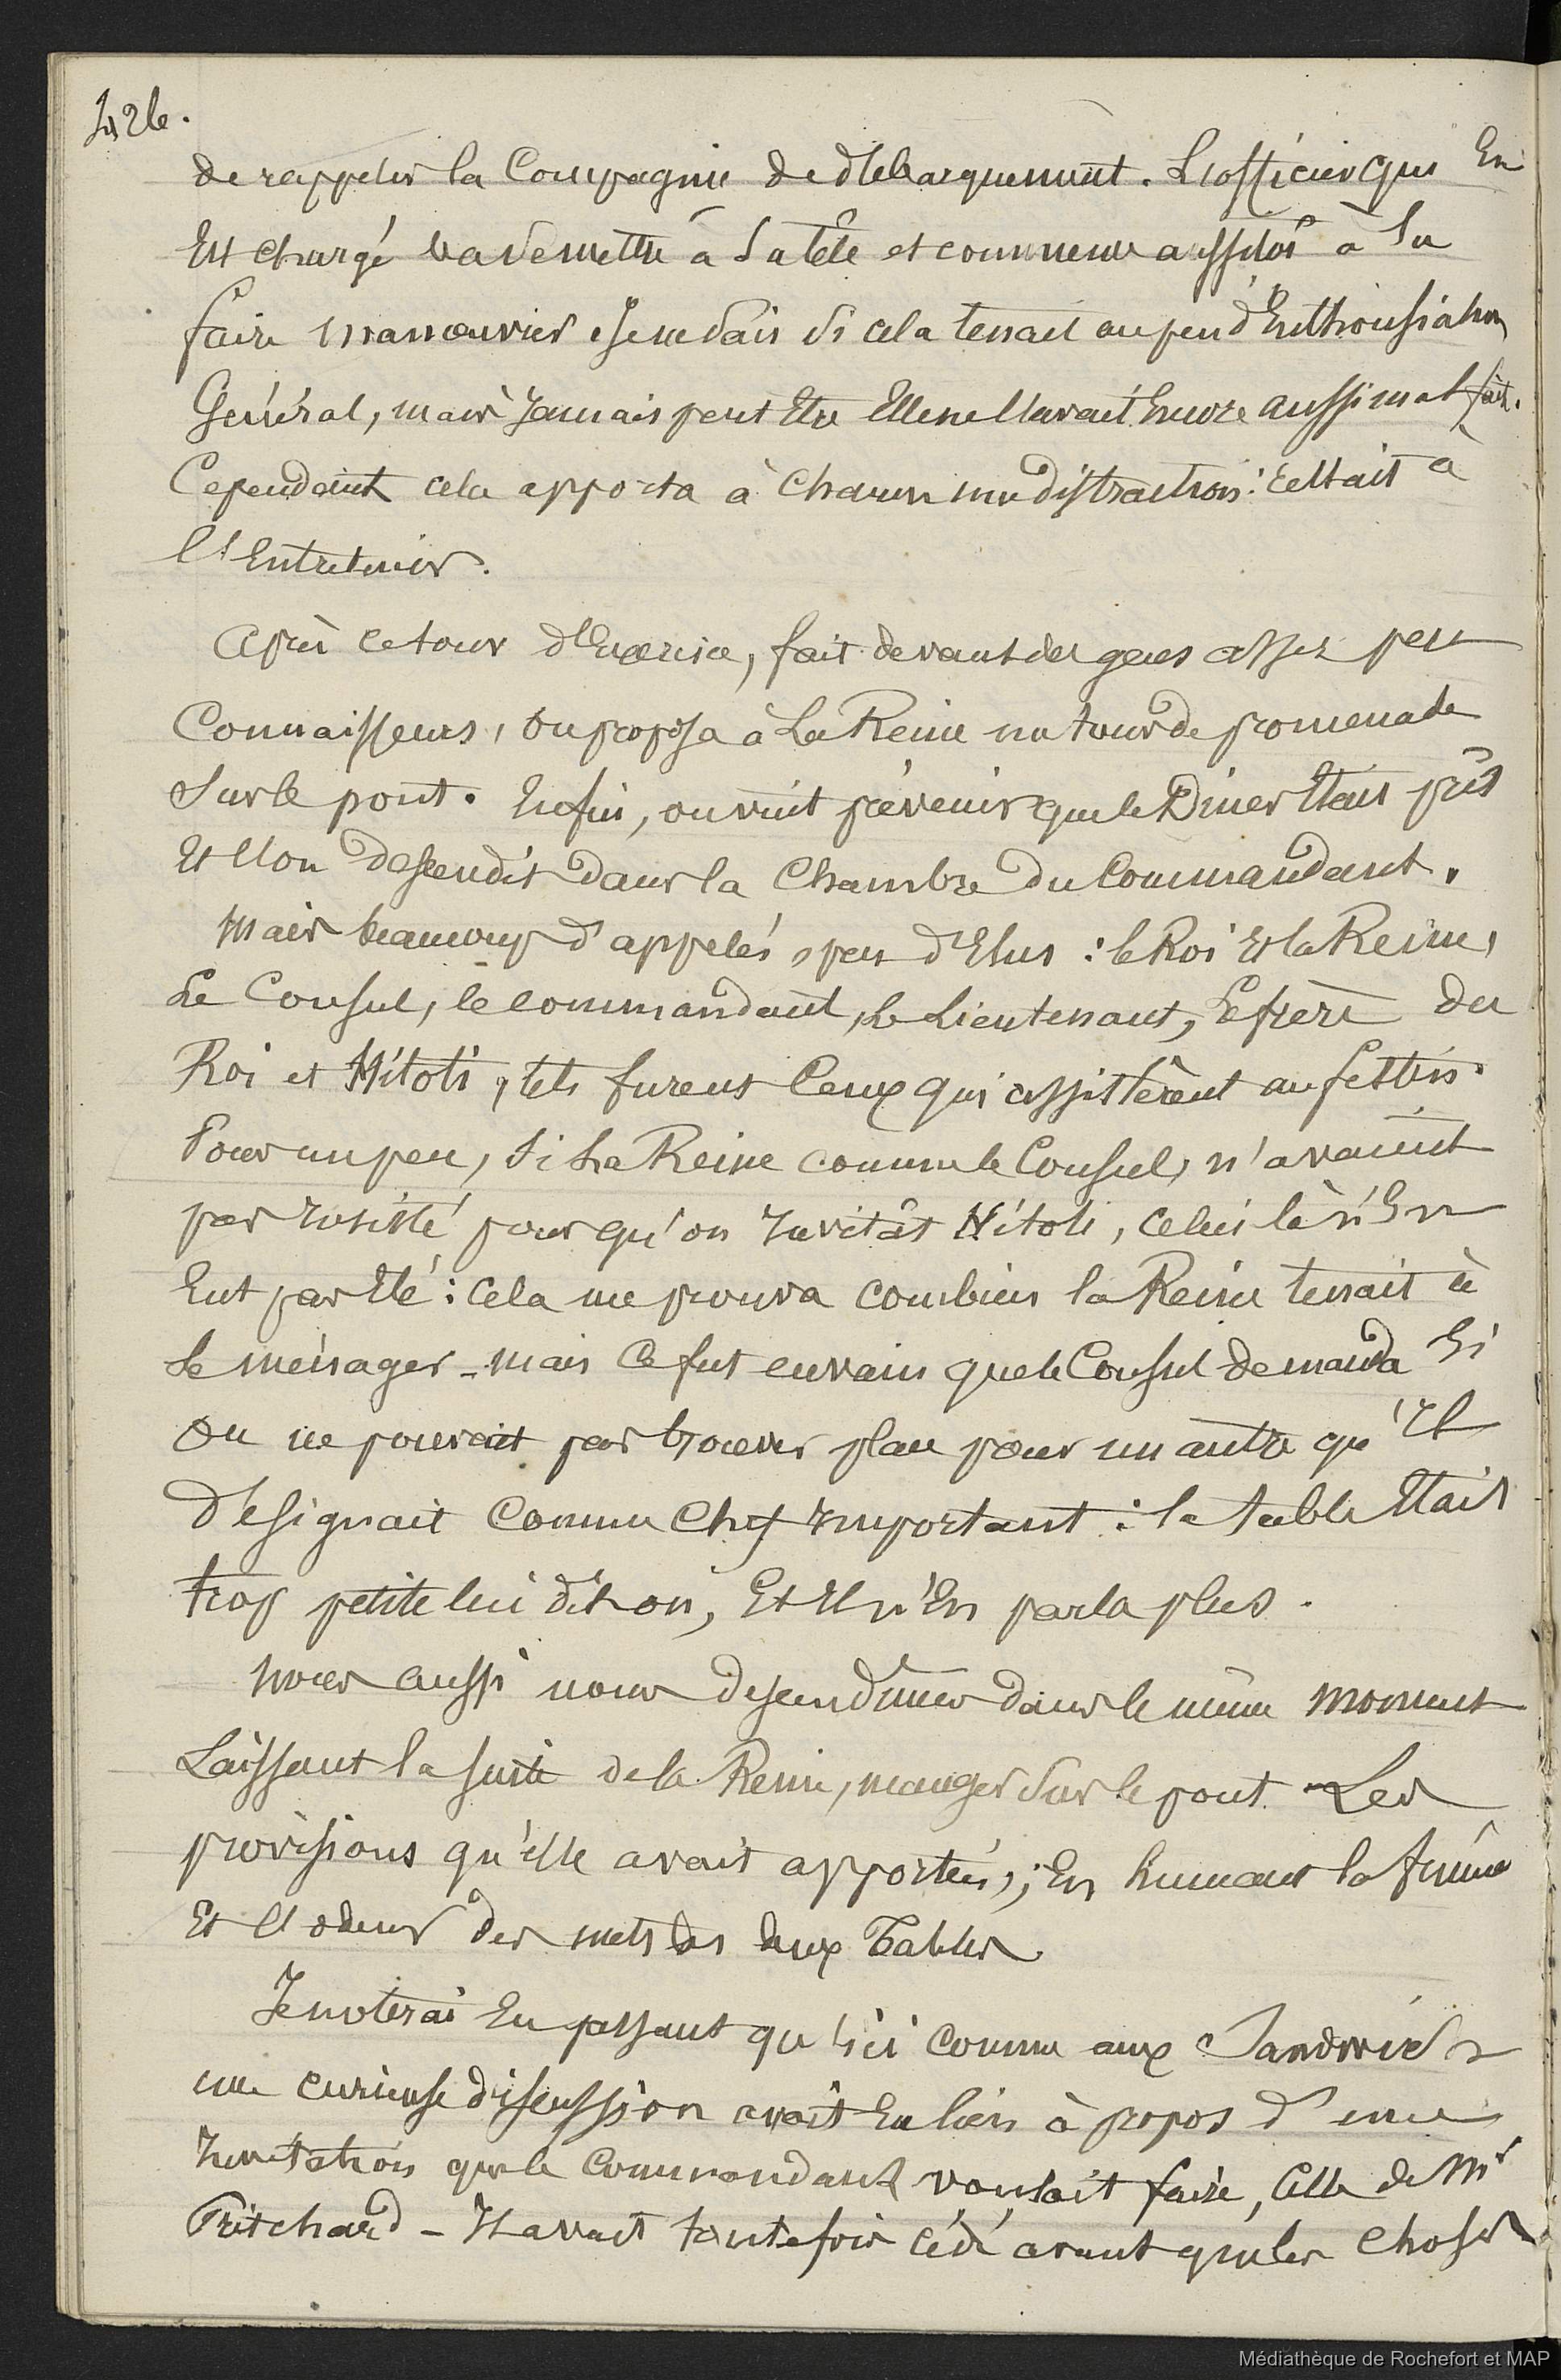 426.
de rappeler la Compagnie de débarquement. L'officier qui En
Est chargé va se mettre à sa tête et commence aussitôt à la
faire manoeuvrer. Je ne sais si cela tenait au peu d'Enthousiasme
Général, mais Jamais peut Etre Elle ne l'avait Encore aussi mal fait.
Cependant cela apporta à Chacun une distraction : c'était à
l'Entretenir.
Après ce tour d'Exercice, fait devant des gens assez peu
Connaisseurs, on proposa à La Reine un tour de promenade
Sur le pont. Enfin, on vint prévenir que le Diner Etait prêt
Et l'on descendit dans la Chambre du Commandant.
Mais beaucoup d'appelés, peu d'Elus : le Roi Et la Reine,
Le Consul, le commandant, le Lieutenant, Le frère du
Roi et Hitoti, tels furent Ceux qui assistèrent au festin.
Pour un peu, Si La Reine comme le Consul, n'avaient
pas Insisté pour qu'on Invitât Hitoti, celui là n'En
Eut pas Eté : cela me prouva combien la Reine tenait à
le ménager - mais Ce fut en vain que le Consul demanda Si
On ne pouvait pas trouver place pour un autre qu'Il
désignait Comme Chef Important : la table Etait
trop petite lui dit-on, Et Il n'En parla plus.
Nous aussi nous descendîmes dans le même moment
Laissant la suite de la Reine, manger Sur le pont Les
provisions qu'elle avait apportées, ; En humant la fumée
Et l'odeur des mets des deux Tables.
Je noterai En passant qu'ici comme aux Sandwich
une curieuse discussion avait Eu lieu à propos d'une
Invitation que le Commandant voulait faire, Celle de Mr
Pritchard - Il avait toutefois cédé avant que les choses
Médiathèque de Rochefort et MAP